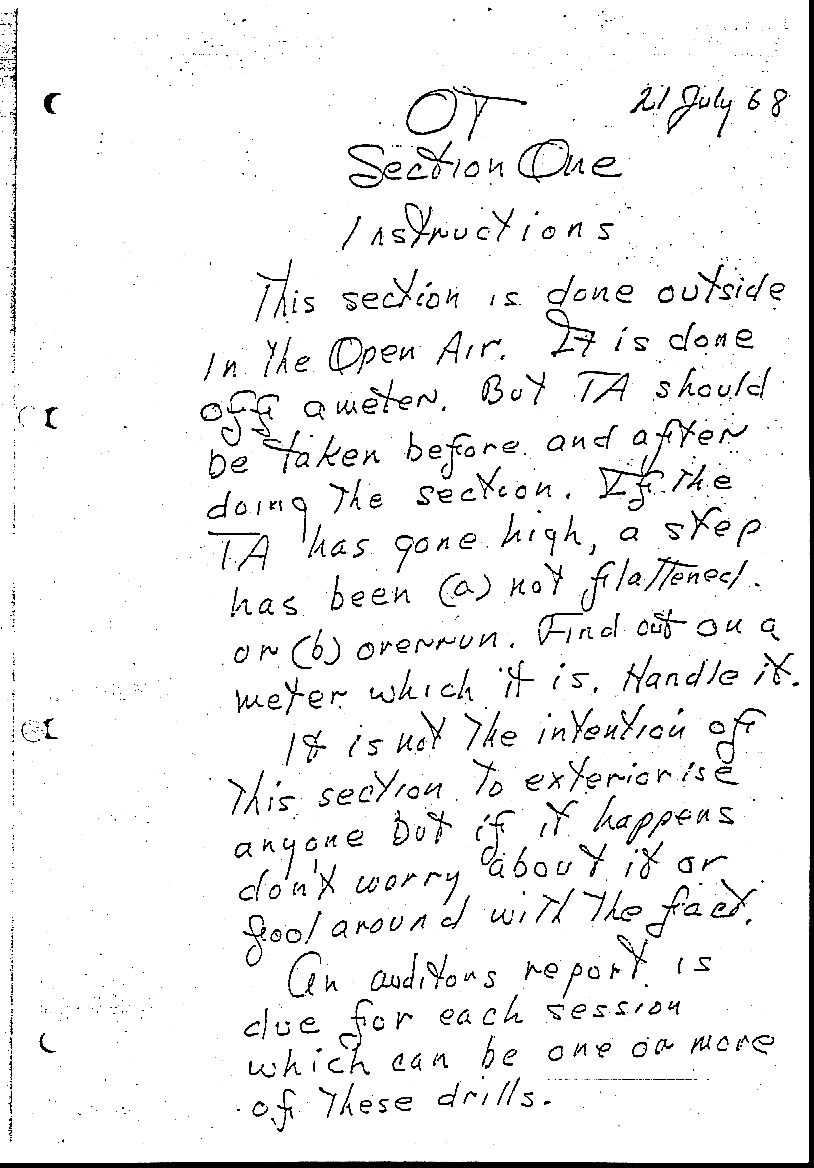 21 July 68
OT
Section One
Instructions
This section is done outside
in the Open Air. It is done
off a meter. But TA should
be taken before and after
doing the section. If the
TA has gone high, a step
has been (a) not flattened.
or (b) overrun. Find out on a
meter which it is. Handle it.
It is not the intention of
this section to exteriorise
anyone but if it happens
don't worry about it or
fool around with the fact.
An auditors report is
due for each session
which can be one or more
of these drills.